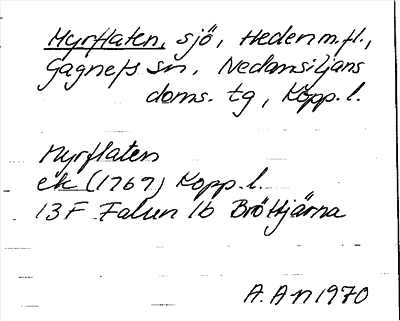 Myrflaten, sjö, Heden m. fl.,
Gagnefs sn. Nedansiljans
doms. tg, Kopp. l.
Myrflaten
ek (1969) Kopp. l.
13 F Falun 1b Bröttjärna
A. An 1970